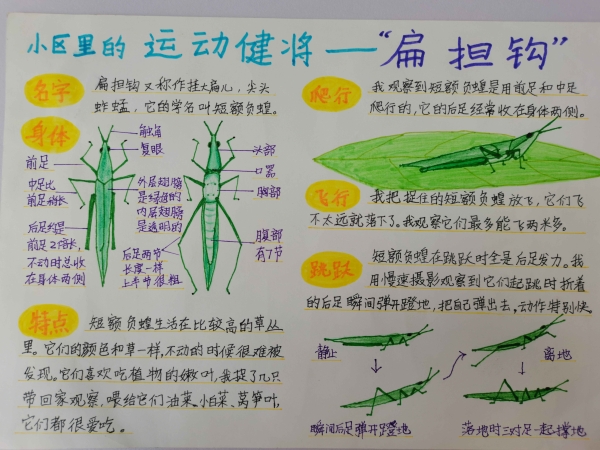 小区里的 运动健将——“扁担钩”
名字
扁担钩又称作挂大扁儿，尖头
蚱蜢，它的学名叫短额负蝗。
身体
触角
复眼
前足
中足比
前足稍长
后足约是
前足2倍长，
不动时总收
在身体两侧
外层翅膀
是绿色的
内层翅膀
是透明的
后足两节
长度一样
上半节很粗
头部
口器
胸部
腹部
有7节
特点
短额负蝗生活在比较高的草丛
里。它们的颜色和草一样，不动的时候很难被
发现。它们喜欢吃植物的嫩叶，我捉了几只
带回家观察，喂给它们油菜、小白菜、莴笋叶，
它们都很爱吃。
爬行
我观察到短额负蝗是用前足和中足
爬行的，它的后足经常收在身体两侧。
飞行
我把捉住的短额负蝗放飞，它们飞
不太远就落下了。我观察它们最多能飞两米多。
跳跃
短额负蝗在跳跃时全是后足发力。我
用慢速摄影观察到它们起跳时折着
的后足瞬间弹开蹬地，把自己弹出去，动作特别快。
静止
离地
瞬间后足弹开蹬地
落地时三对足一起撑地